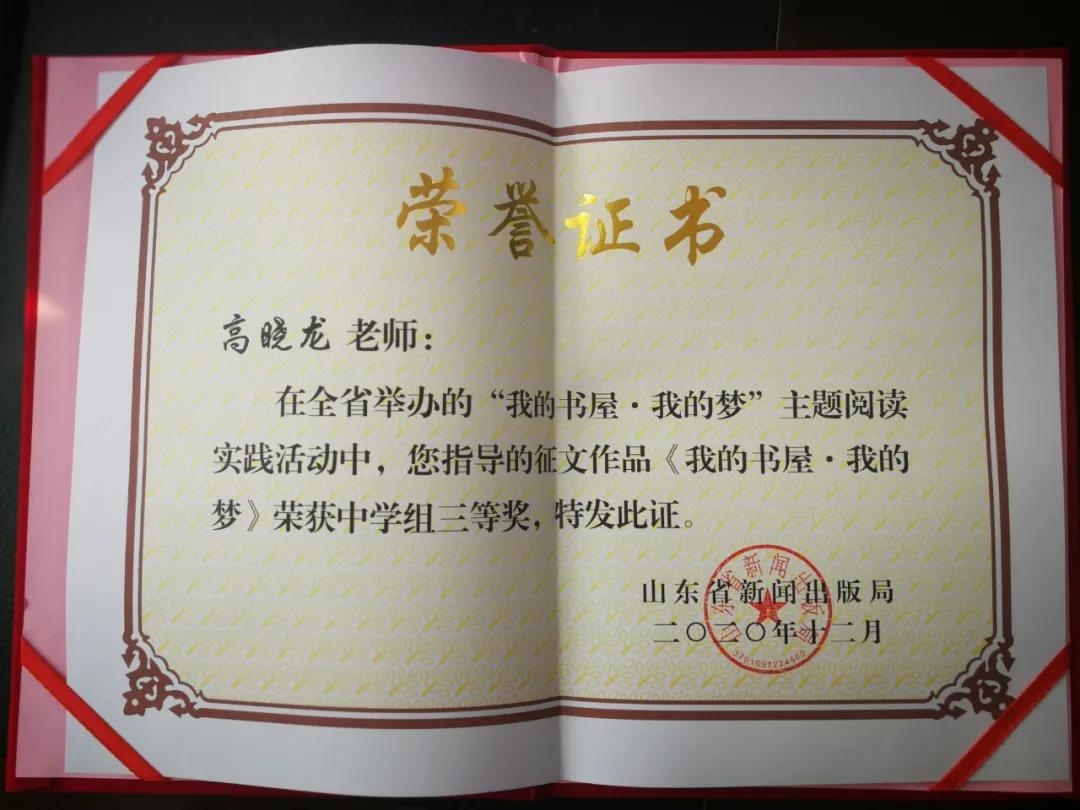 荣誉证书
高晓龙 老师：
在全省举办的“我的书屋·我的梦”主题阅读
实践活动中，您指导的征文作品《我的书屋·我的
梦》荣获中学组三等奖，特发此证。
山东省新闻出版局
二〇二〇年十二月
山东省新闻出版局
3701037224660